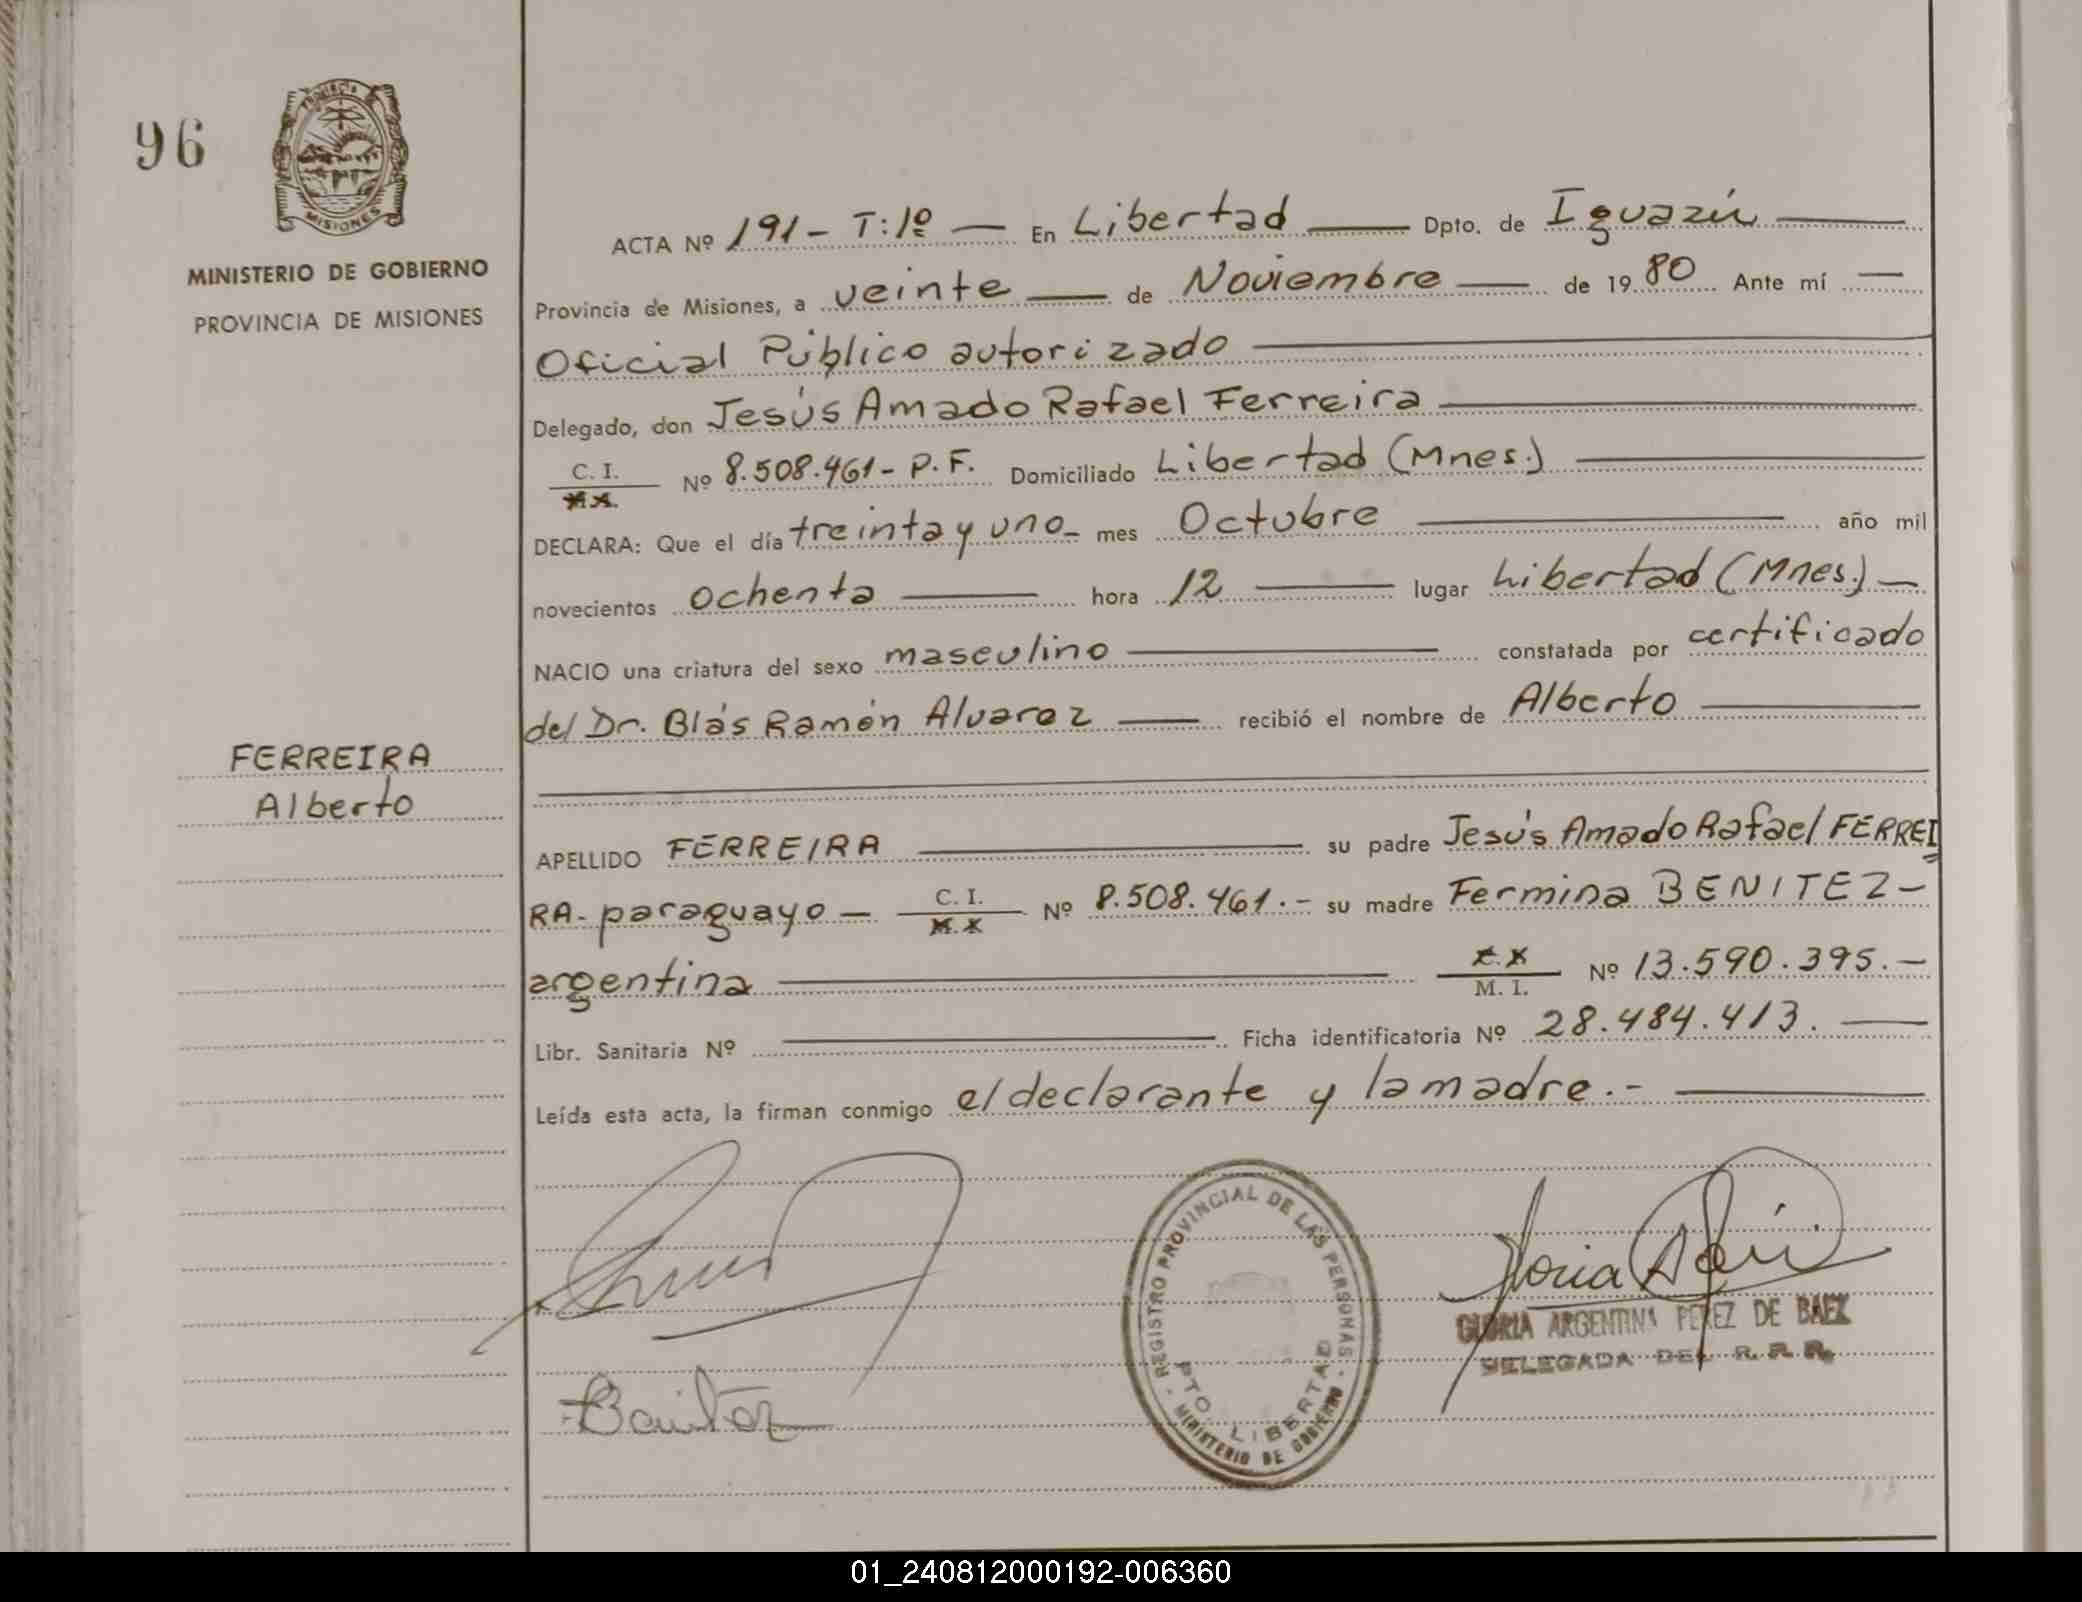 96
PROVINCIA DE
MISIONES
MINISTERIO DE GOBIERNO
PROVINCIA DE MISIONES
FERREIRA
Alberto
ACTA Nº 191 - T: 1º — En Libertad — Dpto. de Iguazú —
Provincia de Misiones, a veinte — de Noviembre — de 1980 Ante mí —
Oficial Público autorizado —
Delegado, don Jesús Amado Rafael Ferreira —
C. I. Nº 8.508.461 - P. F. Domiciliado Libertad (Mnes.) —
DECLARA: Que el día treinta y uno - mes Octubre — año mil
novecientos ochenta — hora 12 — lugar Libertad (Mnes.) —
NACIO una criatura del sexo masculino — constatada por certificado
del Dr. Blás Ramón Alvarez — recibió el nombre de Alberto —
APELLIDO FERREIRA — su padre Jesús Amado Rafael FERREI
RA - paraguayo — C. I. Nº 8.508.461.- su madre Fermina BENITEZ -
argentina — M. I. Nº 13.590.395.-
Libr. Sanitaria Nº — Ficha identificatoria Nº 28.484.413. —
Leída esta acta, la firman conmigo el declarante y la madre.- —
REGISTRO PROVINCIAL DE LAS PERSONAS
PTO. LIBERTAD
MINISTERIO DE GOBIERNO
GLORIA ARGENTINA PEREZ DE BAEZ
DELEGADA DEL R. P. P.
01_240812000192-006360